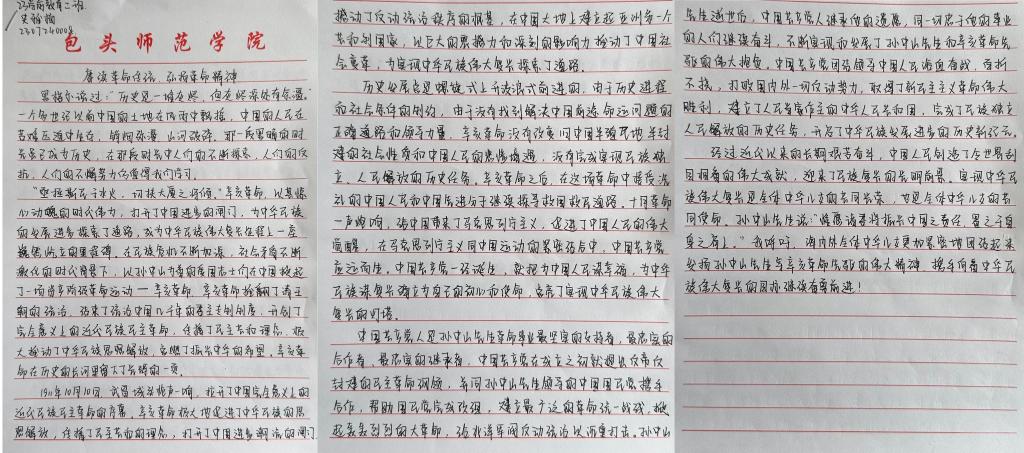 23学前教育二班
2307240008
包头师范学院
赓续革命传统，弘扬革命精神
黑格尔说过："历史是一堆灰烬，但灰烬深处有余温。"
一个多世纪以前中国的土地在阴雨中飘摇，中国的人民在
苦难压迫中生存，硝烟弥漫，山河破碎，那一段黑暗的时
光虽已成为历史，在那段时光中人们的不断探索，人们的反
抗，人们的不懈努力仍值得我们学习。
"亟拯斯民于水火，切扶大厦之将倾。"辛亥革命，以其惊
心动魄的时代伟力，打开了中国进步的闸门，为中华民族
的发展进步探索了道路，成为中华民族伟大复兴征程上一座
巍然屹立的里程碑，在民族危机不断加深，社会矛盾不断
激化的时代背景下，以孙中山为首的爱国志士们在中国掀起
了一场资产阶级革命运动——辛亥革命。辛亥革命推翻了清王
朝的统治，结束了统治中国几千年的君主专制制度，开创了
完全意义上的近代民族民主革命，传播了民主共和理念，极
大推动了中华民族思想解放，点燃了振兴中华的希望，辛亥革
命在历史的长河里留下了光辉的一页。
1911年10月10日，武昌城头枪声一响，拉开了中国完全意义上的
近代民族民主革命的序幕，辛亥革命极大地促进了中华民族的思
想解放，传播了民主共和的理念，打开了中国进步潮流的闸门，
撼动了反动统治秩序的根基，在中国大地上建立起亚洲第一个
共和制国家，以巨大的震撼力和深刻的影响力推动了中国社
会变革，为实现中华民族伟大复兴探索了道路。
历史发展总是螺旋式上升波浪式前进的，由于历史进程
和社会条件的制约，由于没有找到解决中国前途命运问题的
正确道路和领导力量，辛亥革命没有改变旧中国半殖民地半封
建的社会性质和中国人民的悲惨境遇，没有完成实现民族独
立、人民解放的历史任务。辛亥革命之后，在这场革命中接受洗
礼的中国人民和中国先进分子继续探寻救国救民道路。十月革命
一声炮响，给中国带来了马克思列宁主义，促进了中国人民的伟大
觉醒，在马克思列宁主义同中国运动的紧密结合中，中国共产党
应运而生。中国共产党一经诞生，就把为中国人民谋幸福，为中华
民族谋复兴确立为自己的初心和使命，点亮了实现中华民族伟大
复兴的灯塔。
中国共产党人是孙中山先生革命事业最坚定的支持者，最忠实的
合作者，最忠实的继承者，中国共产党在成立之初就提出反帝反
封建的民主革命纲领，并同孙中山先生领导的中国国民党携手
合作，帮助国民党完成改组，建立最广泛的革命统一战线，掀
起轰轰烈烈的大革命，给北洋军阀反动统治以沉重打击。孙中山
先生逝世后，中国共产党人继承他的遗愿，同一切忠于他的事业
的人们继续奋斗，不断实现和发展了孙中山先生和辛亥革命先
驱的伟大抱负，中国共产党团结领导中国人民浴血奋战，百折
不挠，打败国内外一切反动势力，取得了新民主主义革命伟大
胜利，建立了人民当家作主的中华人民共和国，完成了民族独立
人民解放的历史任务，开启了中华民族发展进步的历史新纪元。
经过近代以来的长期艰苦奋斗，中国人民创造了令世界刮
目相看的伟大成就，迎来了民族复兴的光明前景。实现中华民
族伟大复兴是全体中华儿女的共同光荣，也是全体中华儿女的共
同使命，孙中山先生说："惟愿诸君将振兴中国之责任，置之于自
身之肩上。"我呼吁，海内外全体中华儿女更加紧密地团结起来
发扬孙中山先生与辛亥革命先驱的伟大精神，携手向着中华民
族伟大复兴的目标继续奋勇前进！